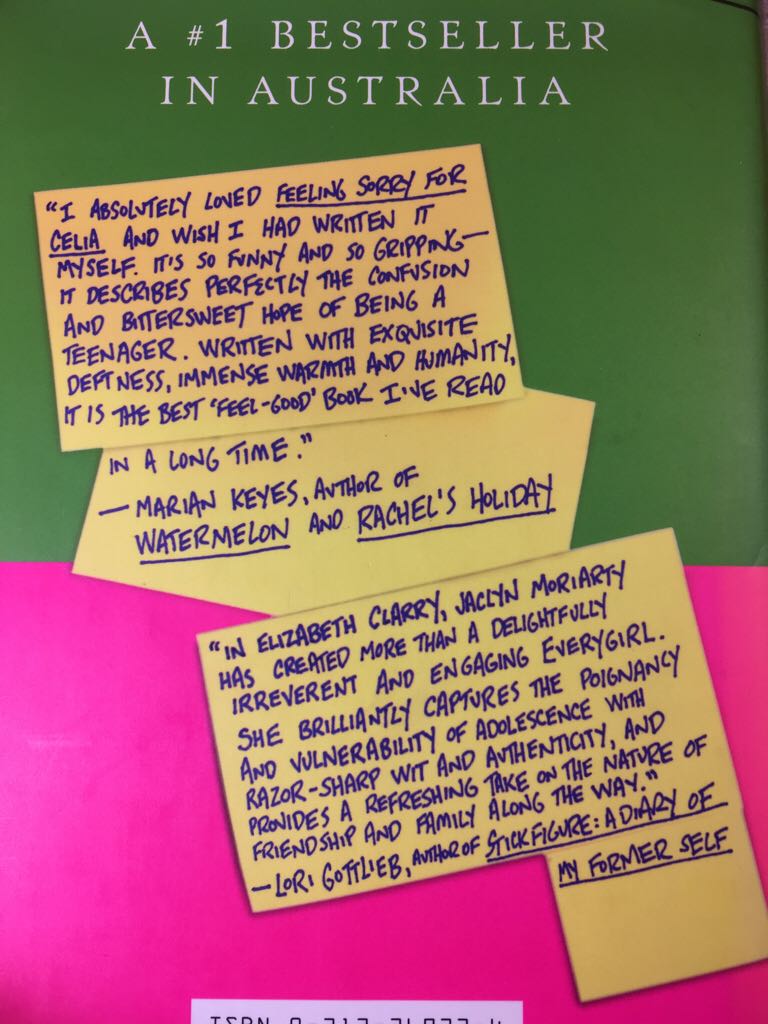 A #1 BESTSELLER
IN AUSTRALIA
"I ABSOLUTELY LOVED FEELING SORRY FOR
CELIA AND WISH I HAD WRITTEN IT
MYSELF. IT'S SO FUNNY AND SO GRIPPING—
IT DESCRIBES PERFECTLY THE CONFUSION
AND BITTERSWEET HOPE OF BEING A
TEENAGER. WRITTEN WITH EXQUISITE
DEFTNESS, IMMENSE WARMTH AND HUMANITY,
IT IS THE BEST 'FEEL-GOOD' BOOK I'VE READ
IN A LONG TIME."
— MARIAN KEYES, AUTHOR OF
WATERMELON AND RACHEL'S HOLIDAY
"IN ELIZABETH CLARRY, JACLYN MORIARTY
HAS CREATED MORE THAN A DELIGHTFULLY
IRREVERENT AND ENGAGING EVERYGIRL.
SHE BRILLIANTLY CAPTURES THE POIGNANCY
AND VULNERABILITY OF ADOLESCENCE WITH
RAZOR-SHARP WIT AND AUTHENTICITY, AND
PROVIDES A REFRESHING TAKE ON THE NATURE OF
FRIENDSHIP AND FAMILY ALONG THE WAY."
— LORI GOTTLIEB, AUTHOR OF STICK FIGURE: A DIARY OF
MY FORMER SELF
ISBN